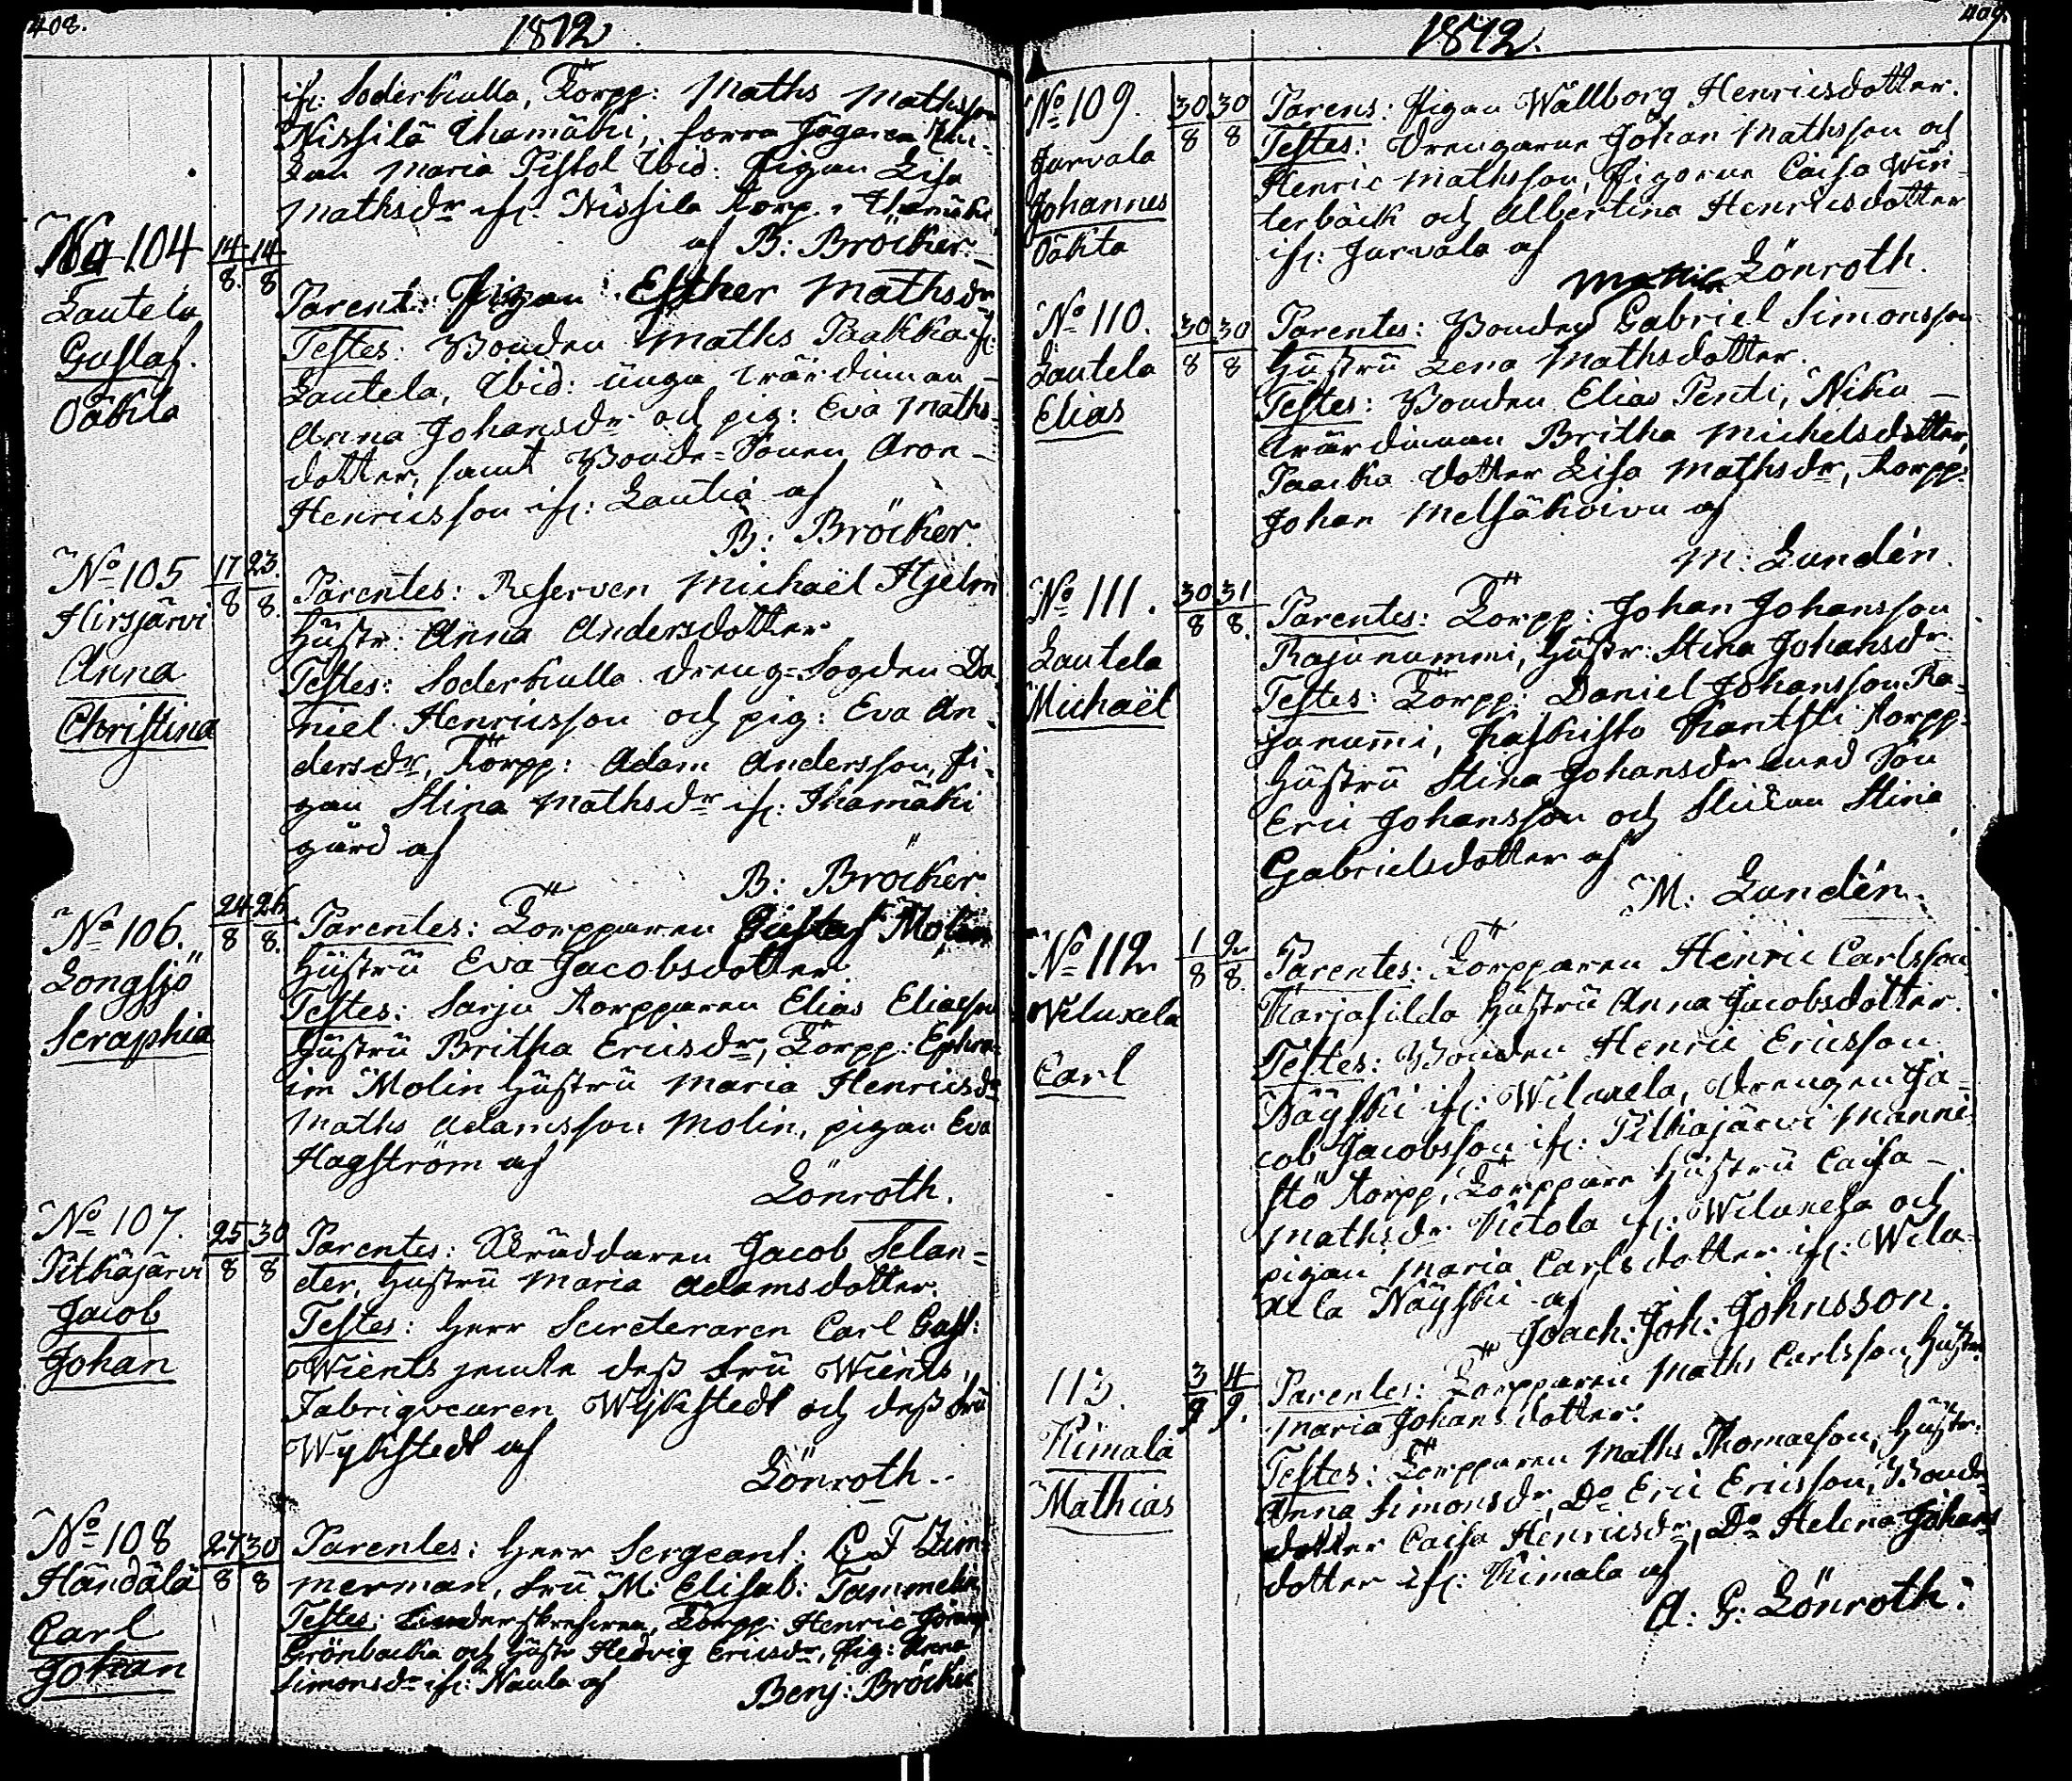 408.
1812
ifr: Söderkulla, Torpp: Maths Mathsson
Nissilä Uhamäki, forra Jägaren Enc-
kan Maria Pistol Ibid: Pigan Lisa
Mathsdr ifr. Nissila Torp. Uhamäki
af B: Bröcker.
No 104
14/8 14/8
Lautela
Gustaf.
Oäkta
Parent: Pigan Esther Mathsdr
Testes: Bonden Maths Paakka ifr:
Lautela, Ibid: unga Wärdinnan
Anna Johansdr och pig: Eva Maths-
dotter, samt Bonde-Sonen Aron
Henricsson ifr: Lautia af
B: Bröcker.
No 105
17/8 23/8.
Hirsjärvi
Anna
Christina
Parentes: Reserven Michaël Hjelm
Hustr: Anna Andersdotter
Testes: Söderkulla Dreng-Fogden Da-
niel Henricsson och pig: Eva An-
dersdr, Torpp: Adam Andersson, Pi-
gan Stina Mathsdr ifr: Ihamäki
gård af
B: Bröcker.
No 106.
24/8 26/8.
Longsjö
Seraphia
Parentes: Torpparen Gustaf Molin
Hustru Eva Jacobsdotter
Testes: Sarju Torpparen Elias Eliasson
Hustru Britha Ericsdr, Torpp: Ephra-
im Molin Hustru Maria Henricsdr
Maths Adamsson Molin, pigan Eva
Hagström af
Lönroth.
No 107.
25/8 30/8
Pitkäjärvi
Jacob
Johan
Parentes: Skräddaren Jacob Selan-
der, Hustru Maria Adamsdotter.
Testes: Herr Secreteraren Carl Gust:
Wients jemte dess Fru Wients,
Fabriqveuren Wykstedt och dess Fru
Wykstedt af
Lönroth.
No 108
27/8 30/8
Händälä
Carl
Johan
Parentes: Herr Sergeant: C. F Zim-
merman, Fru M: Elisab: Tammelin
Testes: Torpp: Henric
Grönbacka och Hustr Hedvig Ericsdr, Pig: Anna
Simonsdr ifr: Naula af
Benj: Bröcker
409.
1812.
No 109.
30/8 30/8
Jurvala
Johannes
Oäkta
Parens: Pigan Wallborg Henricsdotter.
Testes: Drengarne Johan Mathsson och
Henric Mathsson, Pigorne Caisa Win-
terbäck och Albertina Henricsdotter
ifr: Jurvala af
Lönroth.
No 110.
30/8 30/8
Lautela
Elias
Parentes: Bonden Gabriel Simonsson
Hustru Lena Mathsdotter.
Testes: Bonden Elias Penti, Niku
Wärdinnan Britha Michelsdotter,
Paacka Dotter Lisa Mathsdr, Torpp:
Johan Metsäkoivu af
M: Lundén.
No 111.
30/8 31/8.
Lautela
Michaël
Parentes: Torpp: Johan Johansson
Rajanummi, Hustr: Stina Johansdr
Testes: Torpp: Daniel Johansson Ra-
janummi, Kaskisto Kantsti Torpp:
Hustru Stina Johansdr med Son
Eric Johansson och Flickan Stina
Gabrielsdotter af
M: Lundén.
No 112
1/8 2/8.
Wiluxela
Carl
Parentes: Torpparen Henric Carlsson
Marjasilda Hustru Anna Jacobsdotter.
Testes: Bonden Henric Ericsson
Näyski ifr: Wiluxela, Drengen Ja-
cob Jacobsson ifr: Pitkäjärvi Manni-
stö Torpp, Torppare Hustru Caisa
Mathsdr Kietola ifr: Wiluxela och
pigan Maria Carlsdotter ifr: Wilu-
xela Näyski af
Joach: Joh: Johnsson.
113.
3/9 4/9.
Kimala
Mathias
Parentes: Torpparen Maths Carlsson, Hustr:
Maria Johansdotter.
Testes: Torpparen Maths Thomasson, Hustr:
Anna Simonsdr, Do Eric Ericsson, Bonde
dotter Caisa Henricsdr, Do Helena Johans
dotter ifr: Kimala af
A: G: Lönroth.